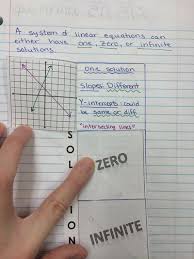 A system of linear equations can
either have one, zero, or infinite
solutions.
one solution
Slopes: Different
Y-intercepts: could
be same or diff.
"intersecting lines"
SOLUTIONS
ZERO
INFINITE